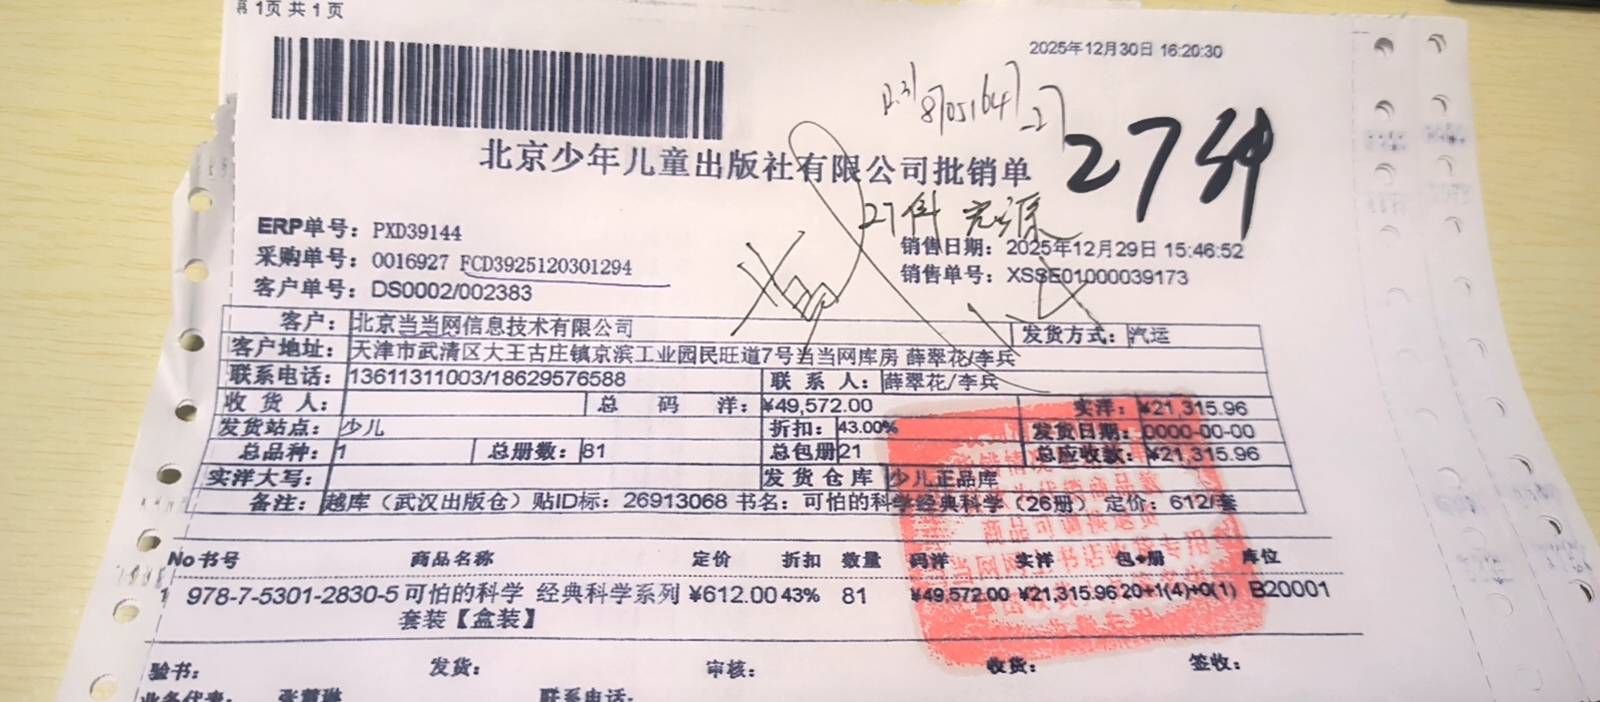 第 1页 共 1 页
2025年12月30日 16:20:30
27件
北京少年儿童出版社有限公司批销单
27件
ERP单号：PXD39144
销售日期：2025年12月29日 15:46:52
采购单号：0016927 FCD3925120301294
销售单号：XSSE01000039173
客户单号：DS0002/002383
客户：北京当当网信息技术有限公司 发货方式：汽运
客户地址：天津市武清区大王古庄镇京滨工业园民旺道7号当当网库房 薛翠花/李兵
联系电话：13611311003/18629576588 联 系 人：薛翠花/李兵
收 货 人： 总 码 洋：¥49,572.00 实洋：¥21,315.96
发货站点：少儿 折扣：43.00% 发货日期：0000-00-00
总品种：1 总册数：81 总包册21 总应收款：¥21,315.96
实洋大写： 发 货 仓 库 少儿正品库
备注：越库（武汉出版仓）贴ID标：26913068 书名：可怕的科学经典科学（26册） 定价：612/套
No 书号 商品名称 定价 折扣 数量 码洋 实洋 包+册 库位
1 978-7-5301-2830-5 可怕的科学 经典科学系列 ¥612.00 43% 81 ¥49,572.00 ¥21,315.96 20+1(4)+0(1) B20001
套装【盒装】
验书： 发货： 审核： 收货： 签收：
业务代表： 张慧琳 联系电话：